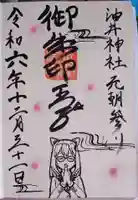 油井神社 元朝祭り
御朱印
令和六年十二月三十一日